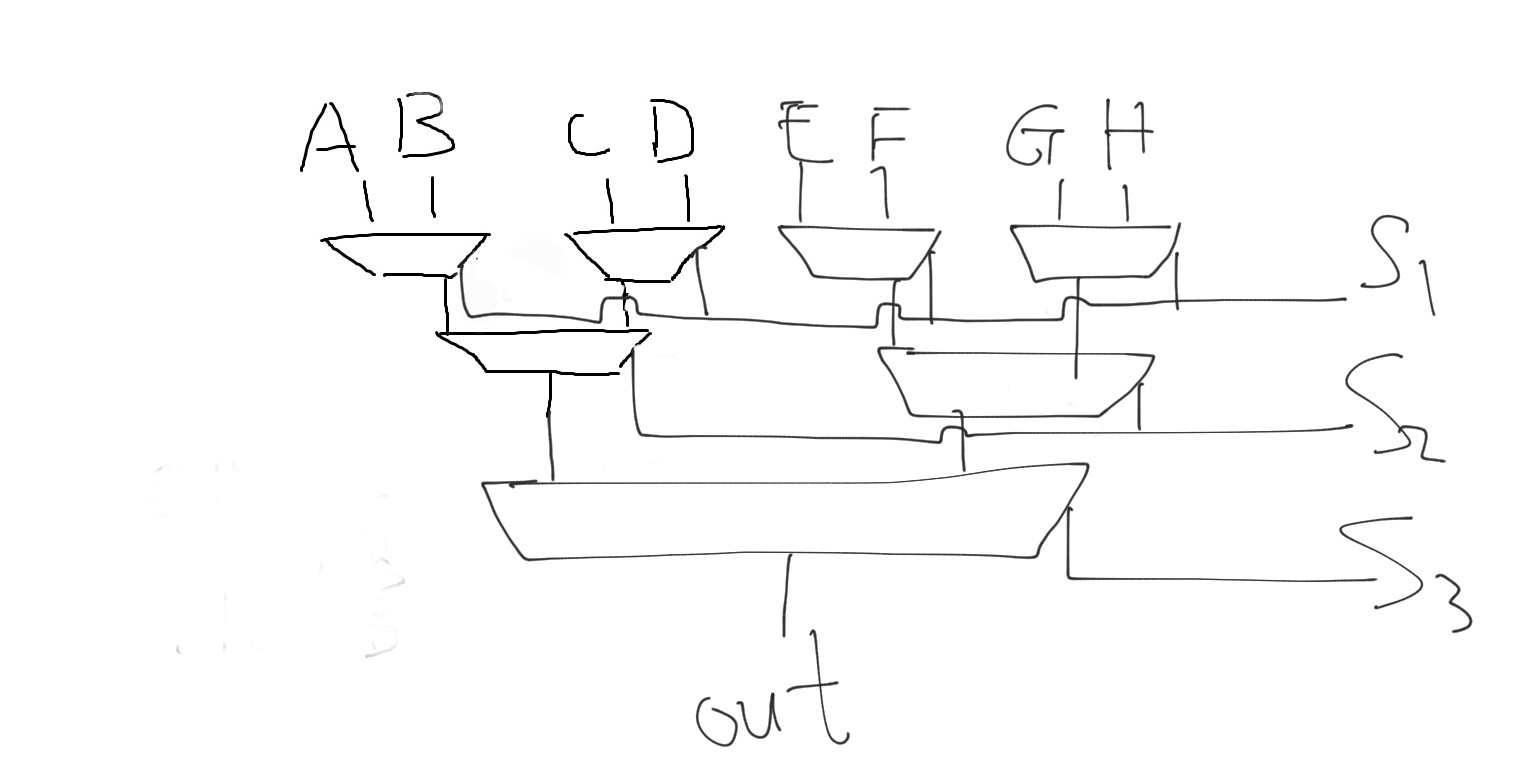 A B C D E F G H
S1
S2
S3
out